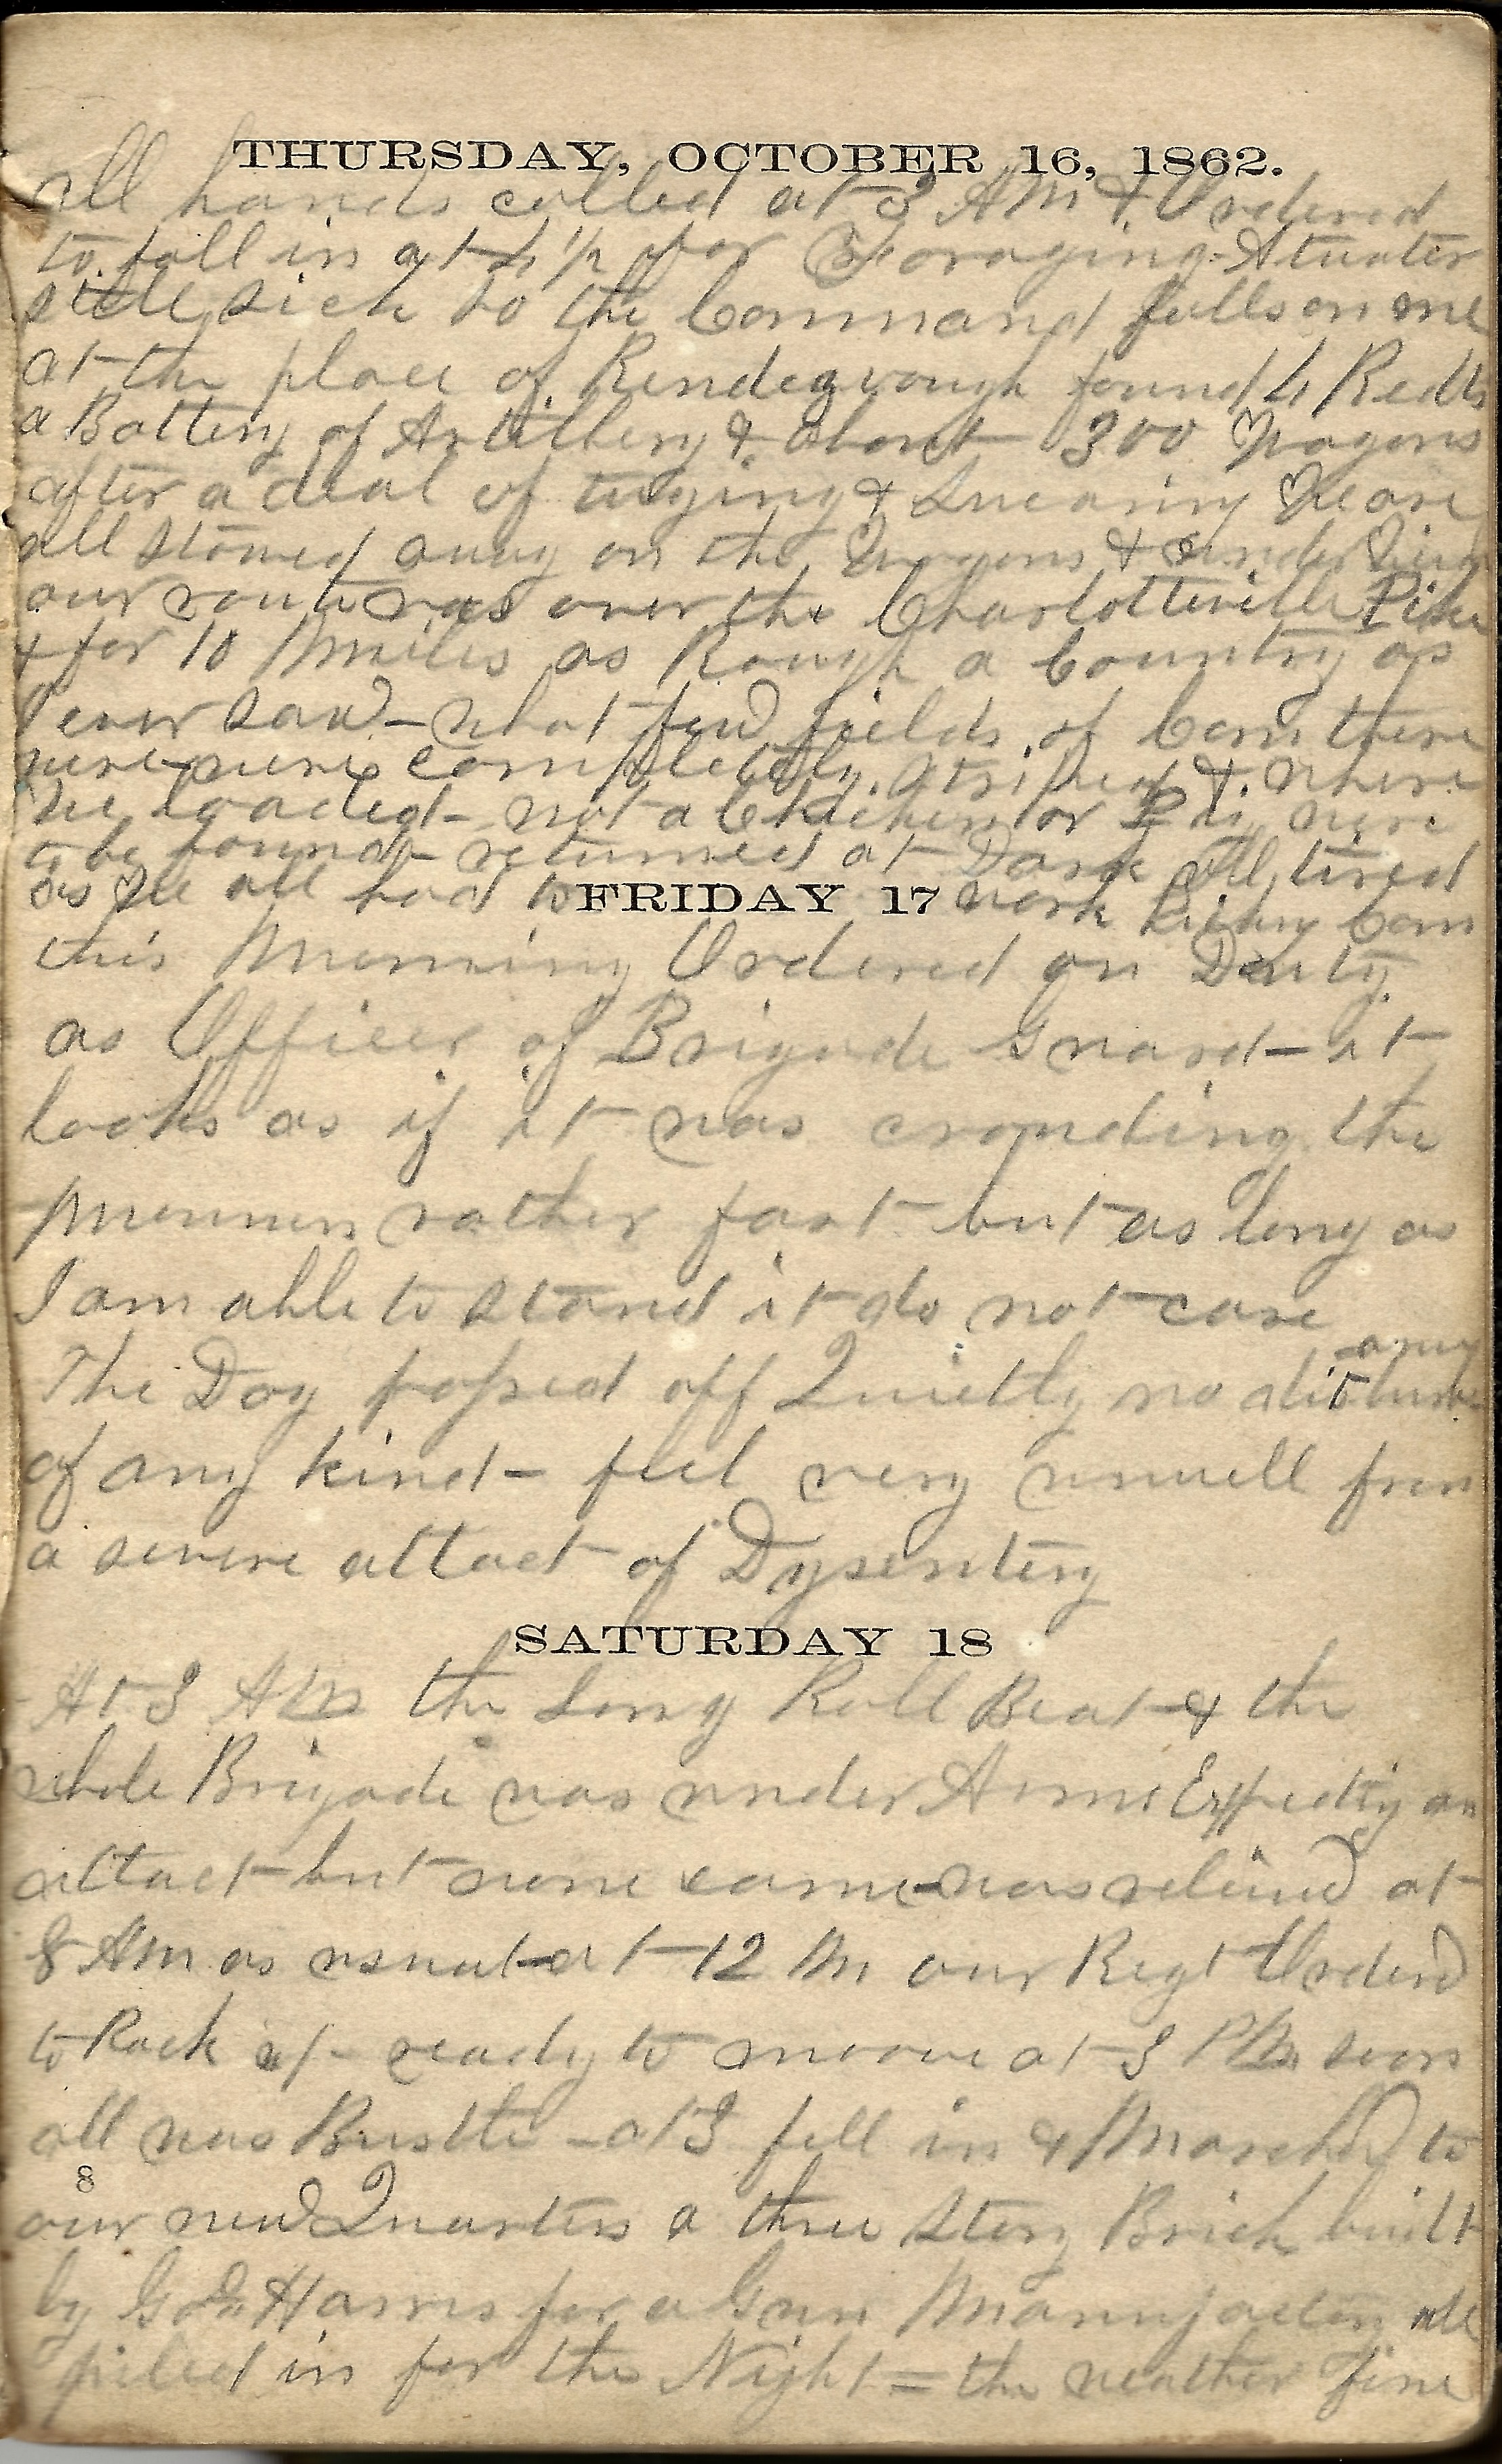 THURSDAY, OCTOBER 16, 1862.
all hands called at 3 AM & Ordered
to fall in at 4 1/2 for Foraging - Atwater
still sick so the Command falls on me
at the place of Rendezvough found 4 Redts
a Battery of Artillery & about 300 Wagons
after a deal of tuging & Swearing We are
all stowed away on the Wagons &
our route was over the Charlotteville Pike
& for 10 Miles as Rough a Country as
I ever saw - what few fields of Corn there
were were completely striped & where
We loaded - not a Chicken or Pig were
to be found - returned at Dark All tired
as We all had to work Picking Corn
FRIDAY 17
this Morning Ordered on Duty
as Officer of Brigade Guard - it
looks as if it was crowding the
mourners rather fast but as long as
I am able to stand it do not care
The Day passed off Quietly no disturbance
of any kind - feel very unwell from
a severe attact of Dysentery
SATURDAY 18
At 3 AM the Long Roll Beat & the
whole Brigade was under Arms Expecting an
attact but none came - was relieved at
8 AM as usual - at 12 M our Regt Orderd
to Pack up ready to moove at 3 PM soon
all was Bustle - at 3 fell in & Marchd to
8
our new Quarters a three Story Brick built
by Harris for a Gun Manufactory all
piled in for the Night = the weather fine